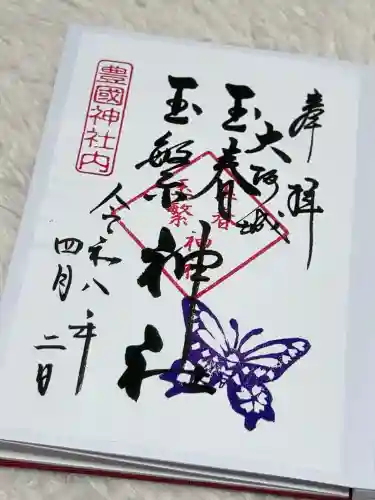 奉拝
大阪城
玉春
玉繁
神社
令和八年
四月二日
豊國神社内
玉春
玉繁
神社